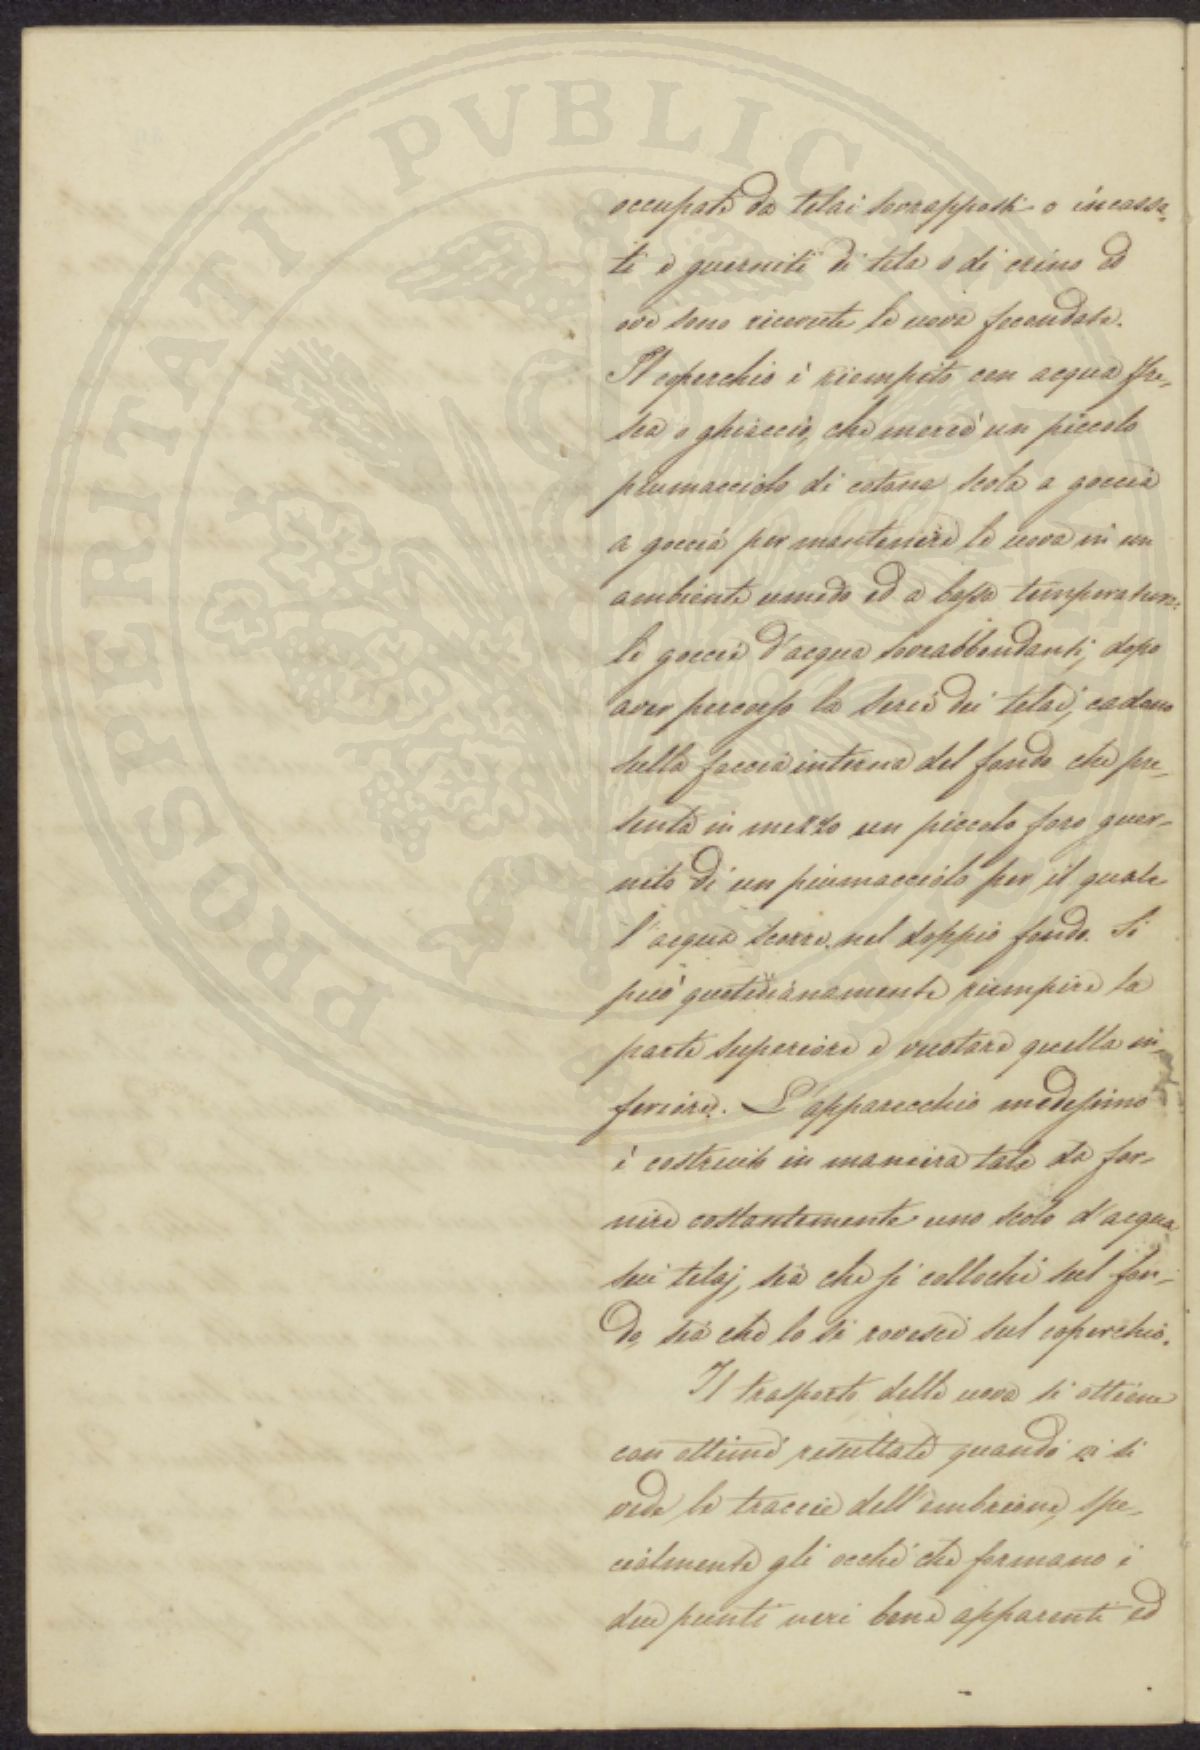 PROSPERITATI PVBLICAE
occupate da telai sovrapposti o incassa-
ti e guerniti di tela o di crino ed
ove sono ricevute le uova fecondate.
Il coperchio è riempito con acqua fre-
sca o ghiaccio, che mercè un piccolo
piumacciolo di cotone scola a goccia
a goccia per mantenere le uova in un
ambiente umido ed a bassa temperatura:
le goccie d'acqua sovrabbondanti, dopo
aver percorso la serie dei telai, cadono
sulla faccia interna del fondo che pre-
senta in mezzo un piccolo foro guer-
nito di un piumacciolo per il quale
l'acqua scorre nel doppio fondo. Si
può quotidianamente riempire la
parte superiore e vuotare quella in-
feriore. L'apparecchio medesimo
è costruito in maniera tale da for-
nire costantemente uno scolo d'acqua
sui telaj, sia che si collochi sul fon-
do, sia che lo si rovesci sul coperchio.
Il trasporto delle uova si ottiene
con ottimi resultati quando vi si
vede le traccie dell'embrione, spe-
cialmente gli occhi che formano i
due punti neri bene apparenti ed